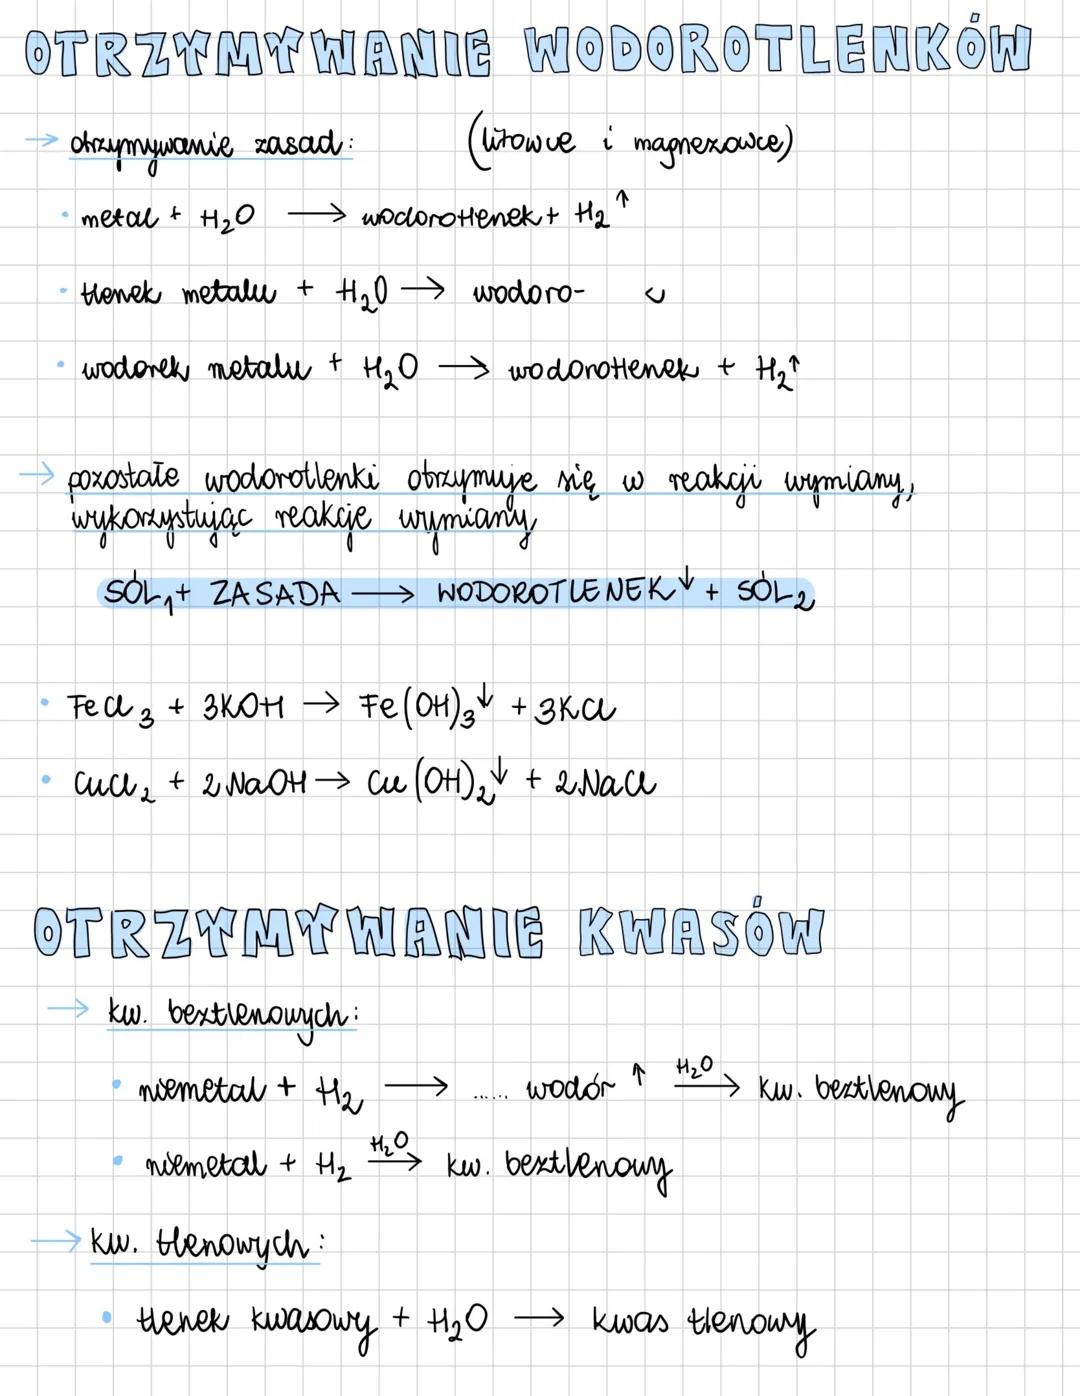 OTRZYMYWANIE WODOROTLENKÓW
→ otrzymywanie zasad: (litowce i magnezowce)
• metal + H₂O → wodorotlenek + H₂↑
• tlenek metalu + H₂O → wodoro-
• wodorek metalu + H₂O → wodorotlenek + H₂↑
→ pozostałe wodorotlenki otrzymuje się w reakcji wymiany,
wykorzystując reakcje wymiany,
SÓL₁ + ZASADA → WODOROTLENEK↓ + SÓL₂
• FeCl₃ + 3KOH → Fe(OH)₃↓ + 3KCl
• CuCl₂ + 2NaOH → Cu(OH)₂↓ + 2NaCl
OTRZYMYWANIE KWASÓW
→ kw. beztlenowych:
• niemetal + H₂ → ...... wodór ↑ H₂O→ kw. beztlenowy
• niemetal + H₂ H₂O→ kw. beztlenowy
→ kw. tlenowych:
• tlenek kwasowy + H₂O → kwas tlenowy